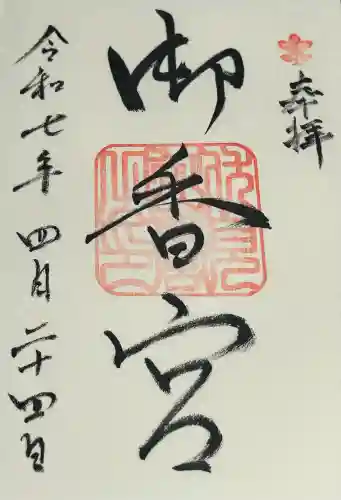 奉拝
御香宮
令和七年 四月二十四日